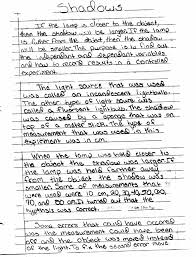 Shadows
If the lamp is closer to the object,
then the shadow will be larger. If the lamp
is father from the object then the shadow
will be smaller. The purpose is to find out
the independent and dependent variables
and how to record results in a controlled
experiment.
The light source that was used
was called an incandescent lightbulb.
The other type of light source was
called a fluorescent lightbulb. The shadow
was caused by a sponge that was on
top of a stick. The type of
measurement that was used in this
experiment was in cm.
When the lamp was held close to
the object the shadow was larger. If
the lamp was held farther away
from the object the shadow was
smaller. Some of measurements that
were used were 10 cm, 20, 30, 40, 50,
and 60 cm. It turned out that the
was correct.
Some errors that could have occured
was the measurement could have been
off and the object was moved instead
of the light. To fix the second error have